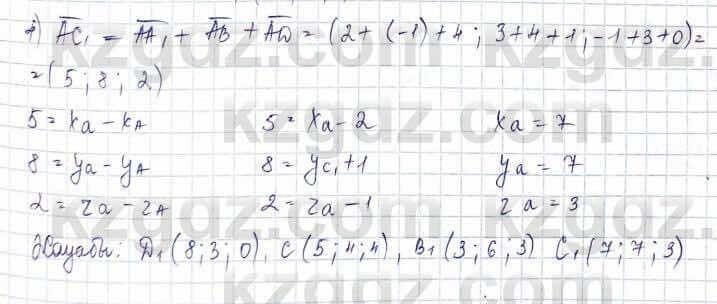 4) AC₁ = AA₁ + AB + AD = (2 + (-1) + 4 ; 3+4+1 ; -1+3+0) =
= (5 ; 8 ; 2)
5 = xa - xA 5 = xa - 2 xa = 7
8 = ya - yA 8 = yc₁ + 1 ya = 7
2 = za - zA 2 = za - 1 za = 3
Жауабы: D₁ (8 ; 3 ; 0), C (5 ; 4 ; 4), B₁ (3 ; 6 ; 3) C₁ (7 ; 7 ; 3)
kzgdz.com